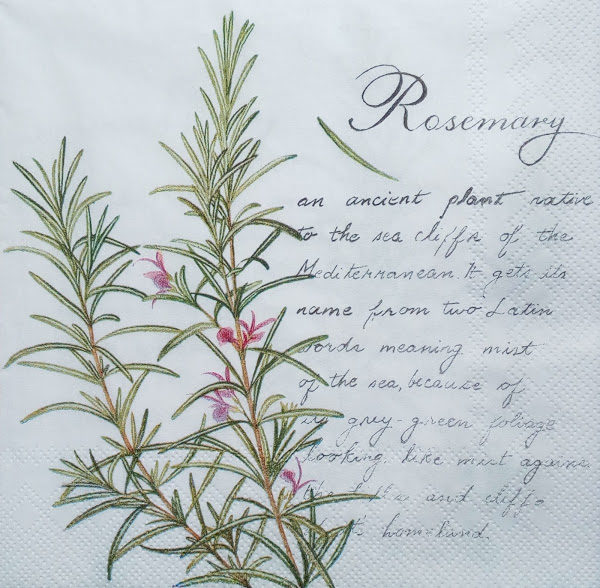 Rosemary
an ancient plant native
to the sea cliffs of the
Mediterranean. It gets its
name from two Latin
words meaning mist
of the sea, because of
its grey-green foliage
looking like mist against
and cliffs
homeland.